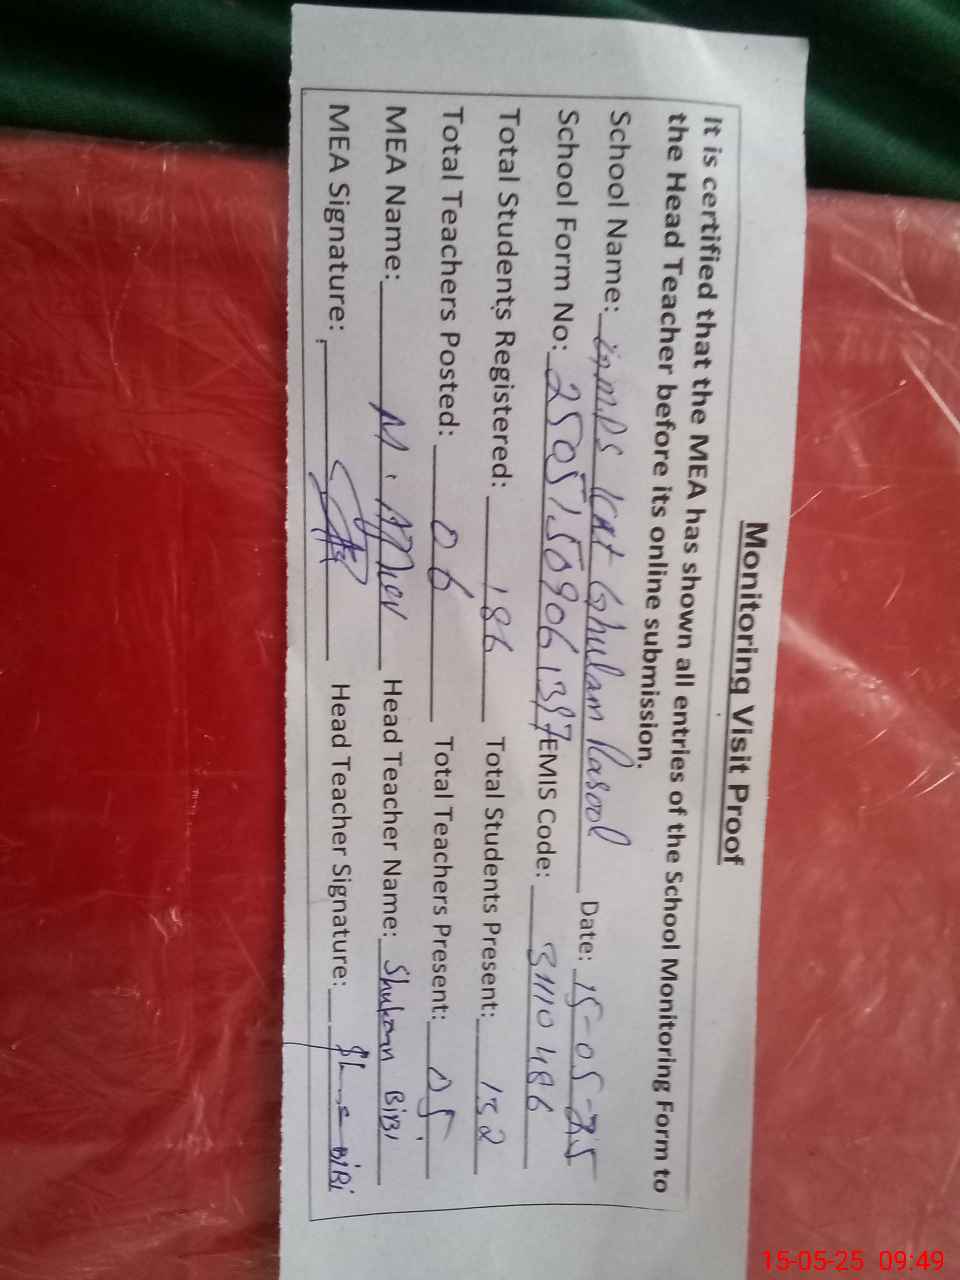 Monitoring Visit Proof
It is certified that the MEA has shown all entries of the School Monitoring Form to
the Head Teacher before its online submission.
School Name: Ghulam Rasool Date: 15-05-25
School Form No: 25051509061397 EMIS Code: 31110486
Total Students Registered: 186 Total Students Present: 132
Total Teachers Posted: 06 Total Teachers Present: 05
MEA Name: M. Head Teacher Name: BiBi
MEA Signature: Head Teacher Signature: BiBi
15-05-25 09:49